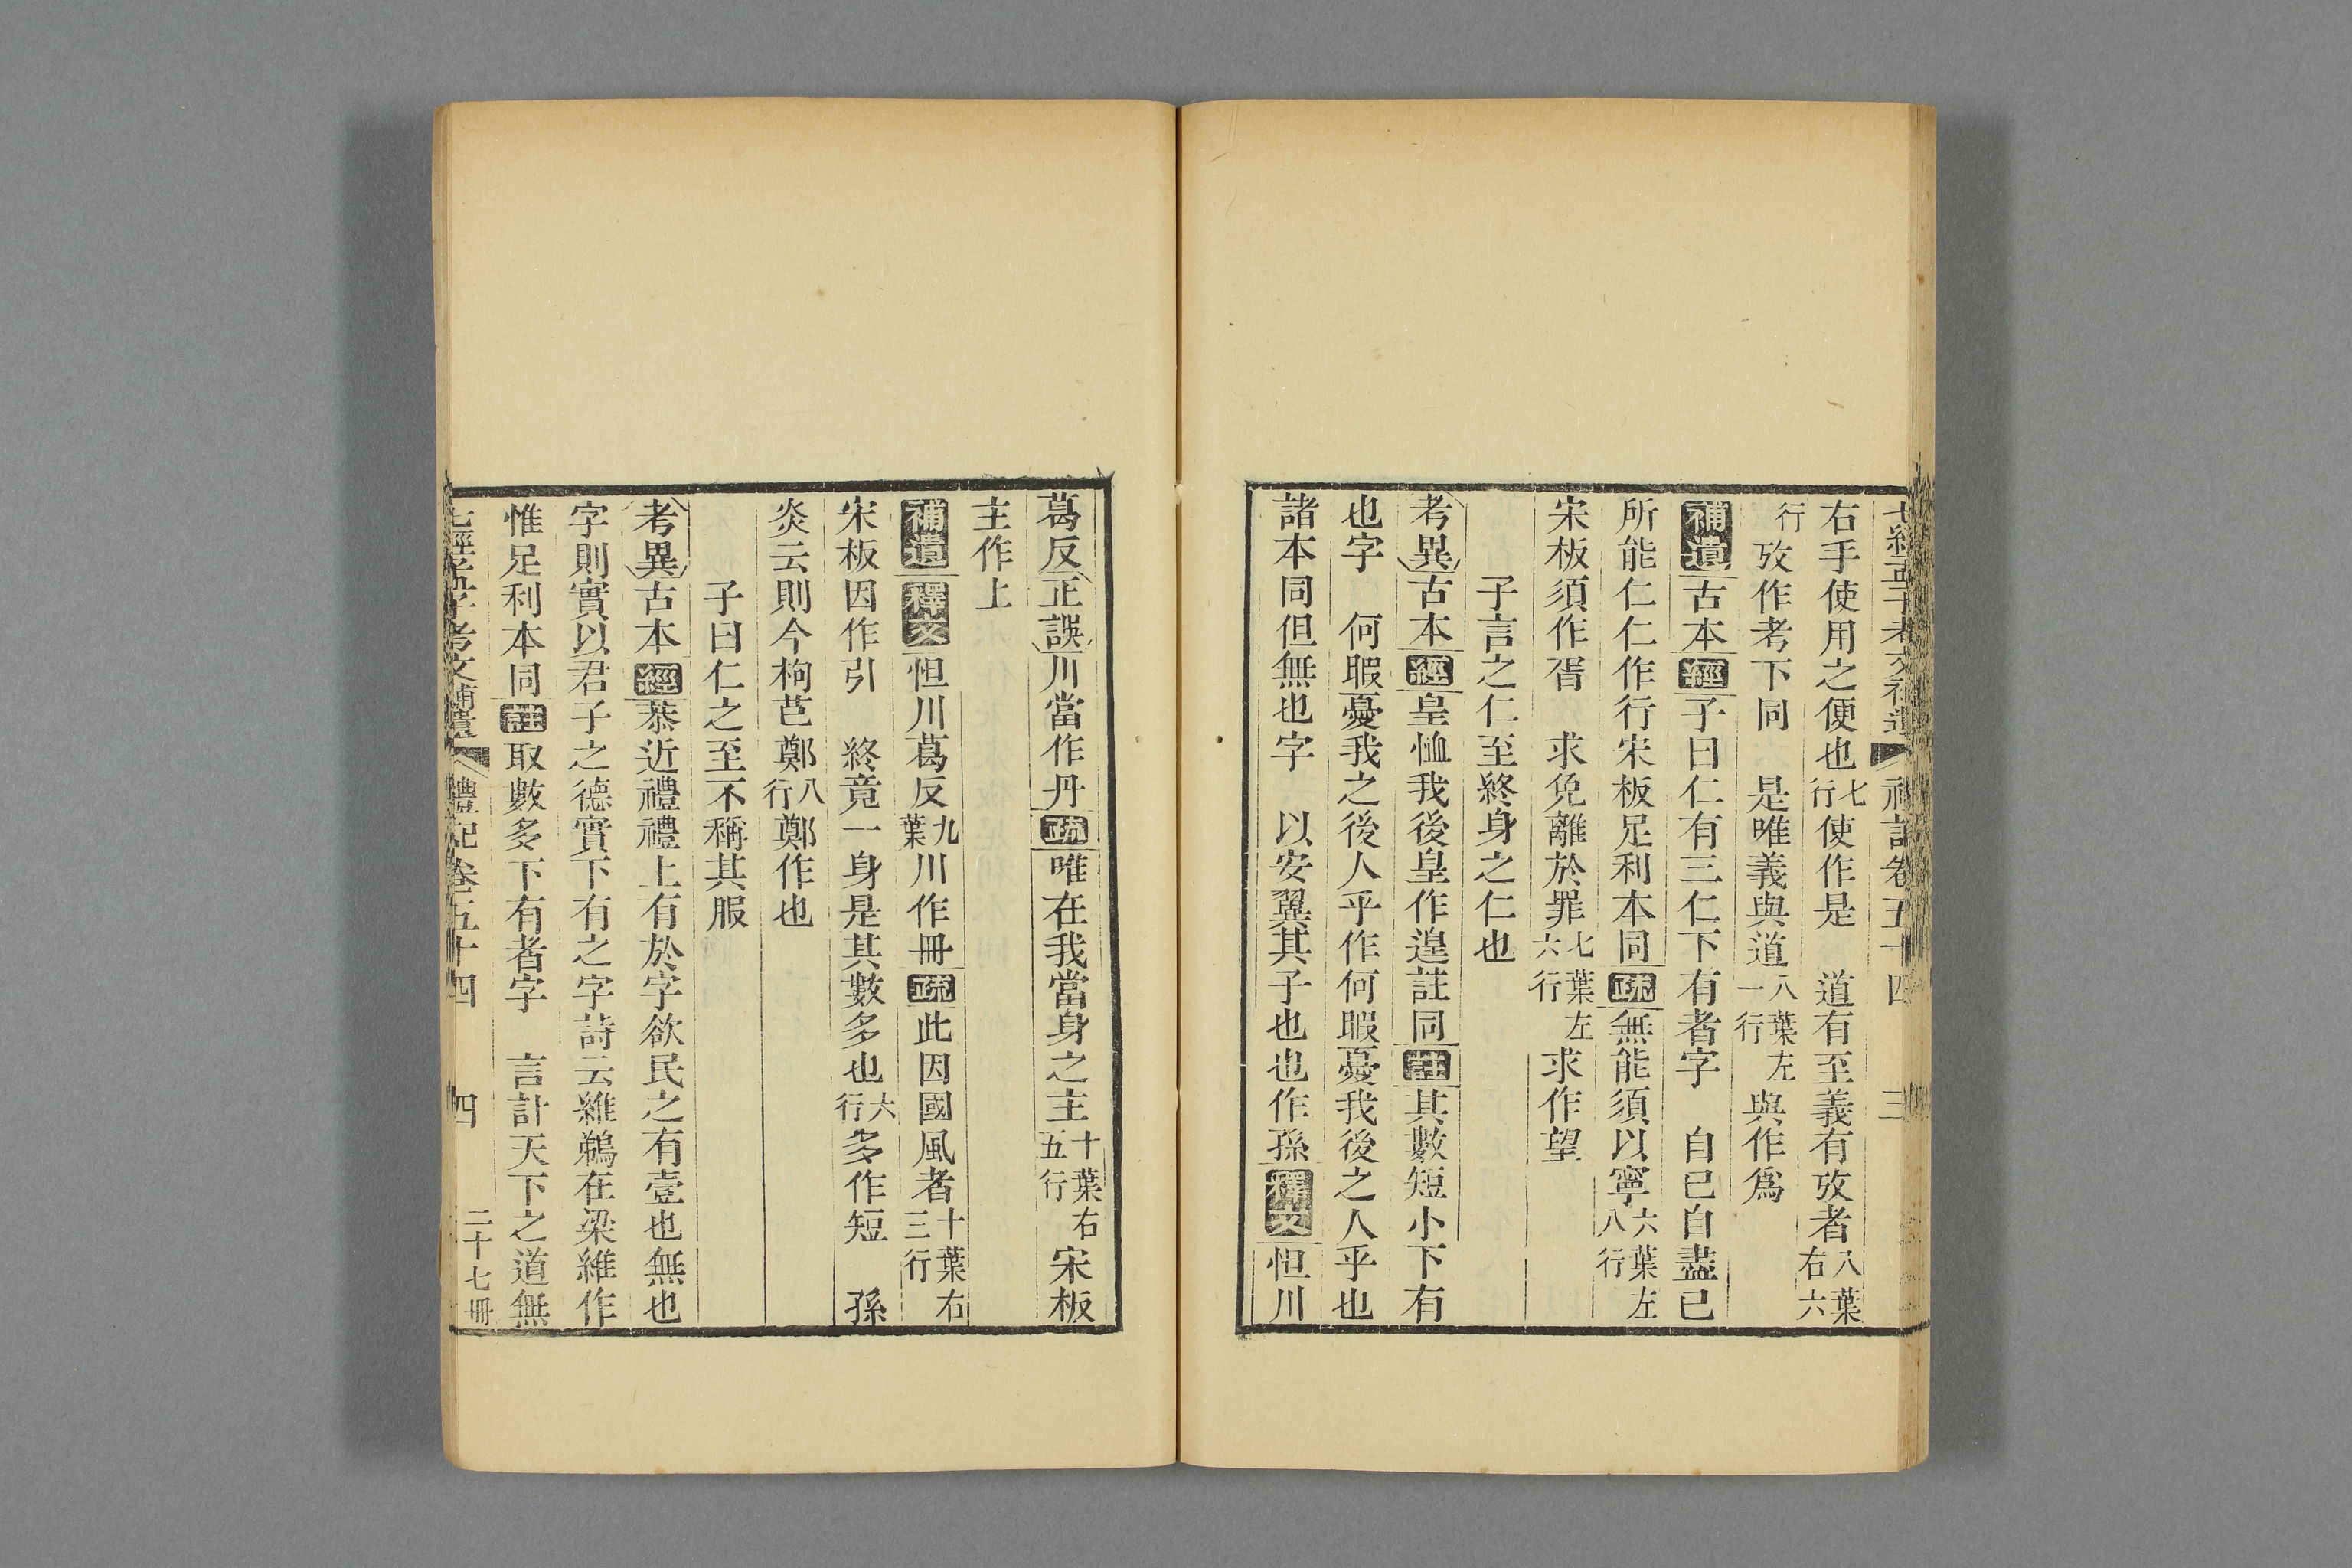 七經孟子考文補遺 禮記卷五十四 三
右手使用之便也七行使作是　道有至義有攷者八葉右六
行攷作考下同　是唯義與道八葉左一行與作爲
補遺古本經子曰仁有三仁下有者字　自己自盡己
所能仁仁作行宋板足利本同疏無能須以寧六葉左八行
宋板須作胥　求免離於罪七葉左六行求作望
子言之仁至終身之仁也
考異古本經皇恤我後皇作遑註同註其數短小下有
也字　何暇憂我之後人乎作何暇憂我後之人乎也
諸本同但無也字　以安翼其子也也作孫釋文怛川
葛反正誤川當作丹疏唯在我當身之主十葉右五行宋板
主作上
補遺釋文怛川葛反九葉川作冊疏此因國風者十葉右三行
宋板因作引　終竟一身是其數多也六行多作短　孫
炎云則今枸芑鄭八行鄭作也
子曰仁之至不稱其服
考異古本經恭近禮禮上有於字欲民之有壹也無也
字則實以君子之德實下有之字詩云維鵜在梁維作
惟足利本同註取數多下有者字　言計天下之道無
七經孟子考文補遺 禮記卷五十四 四 二十七冊